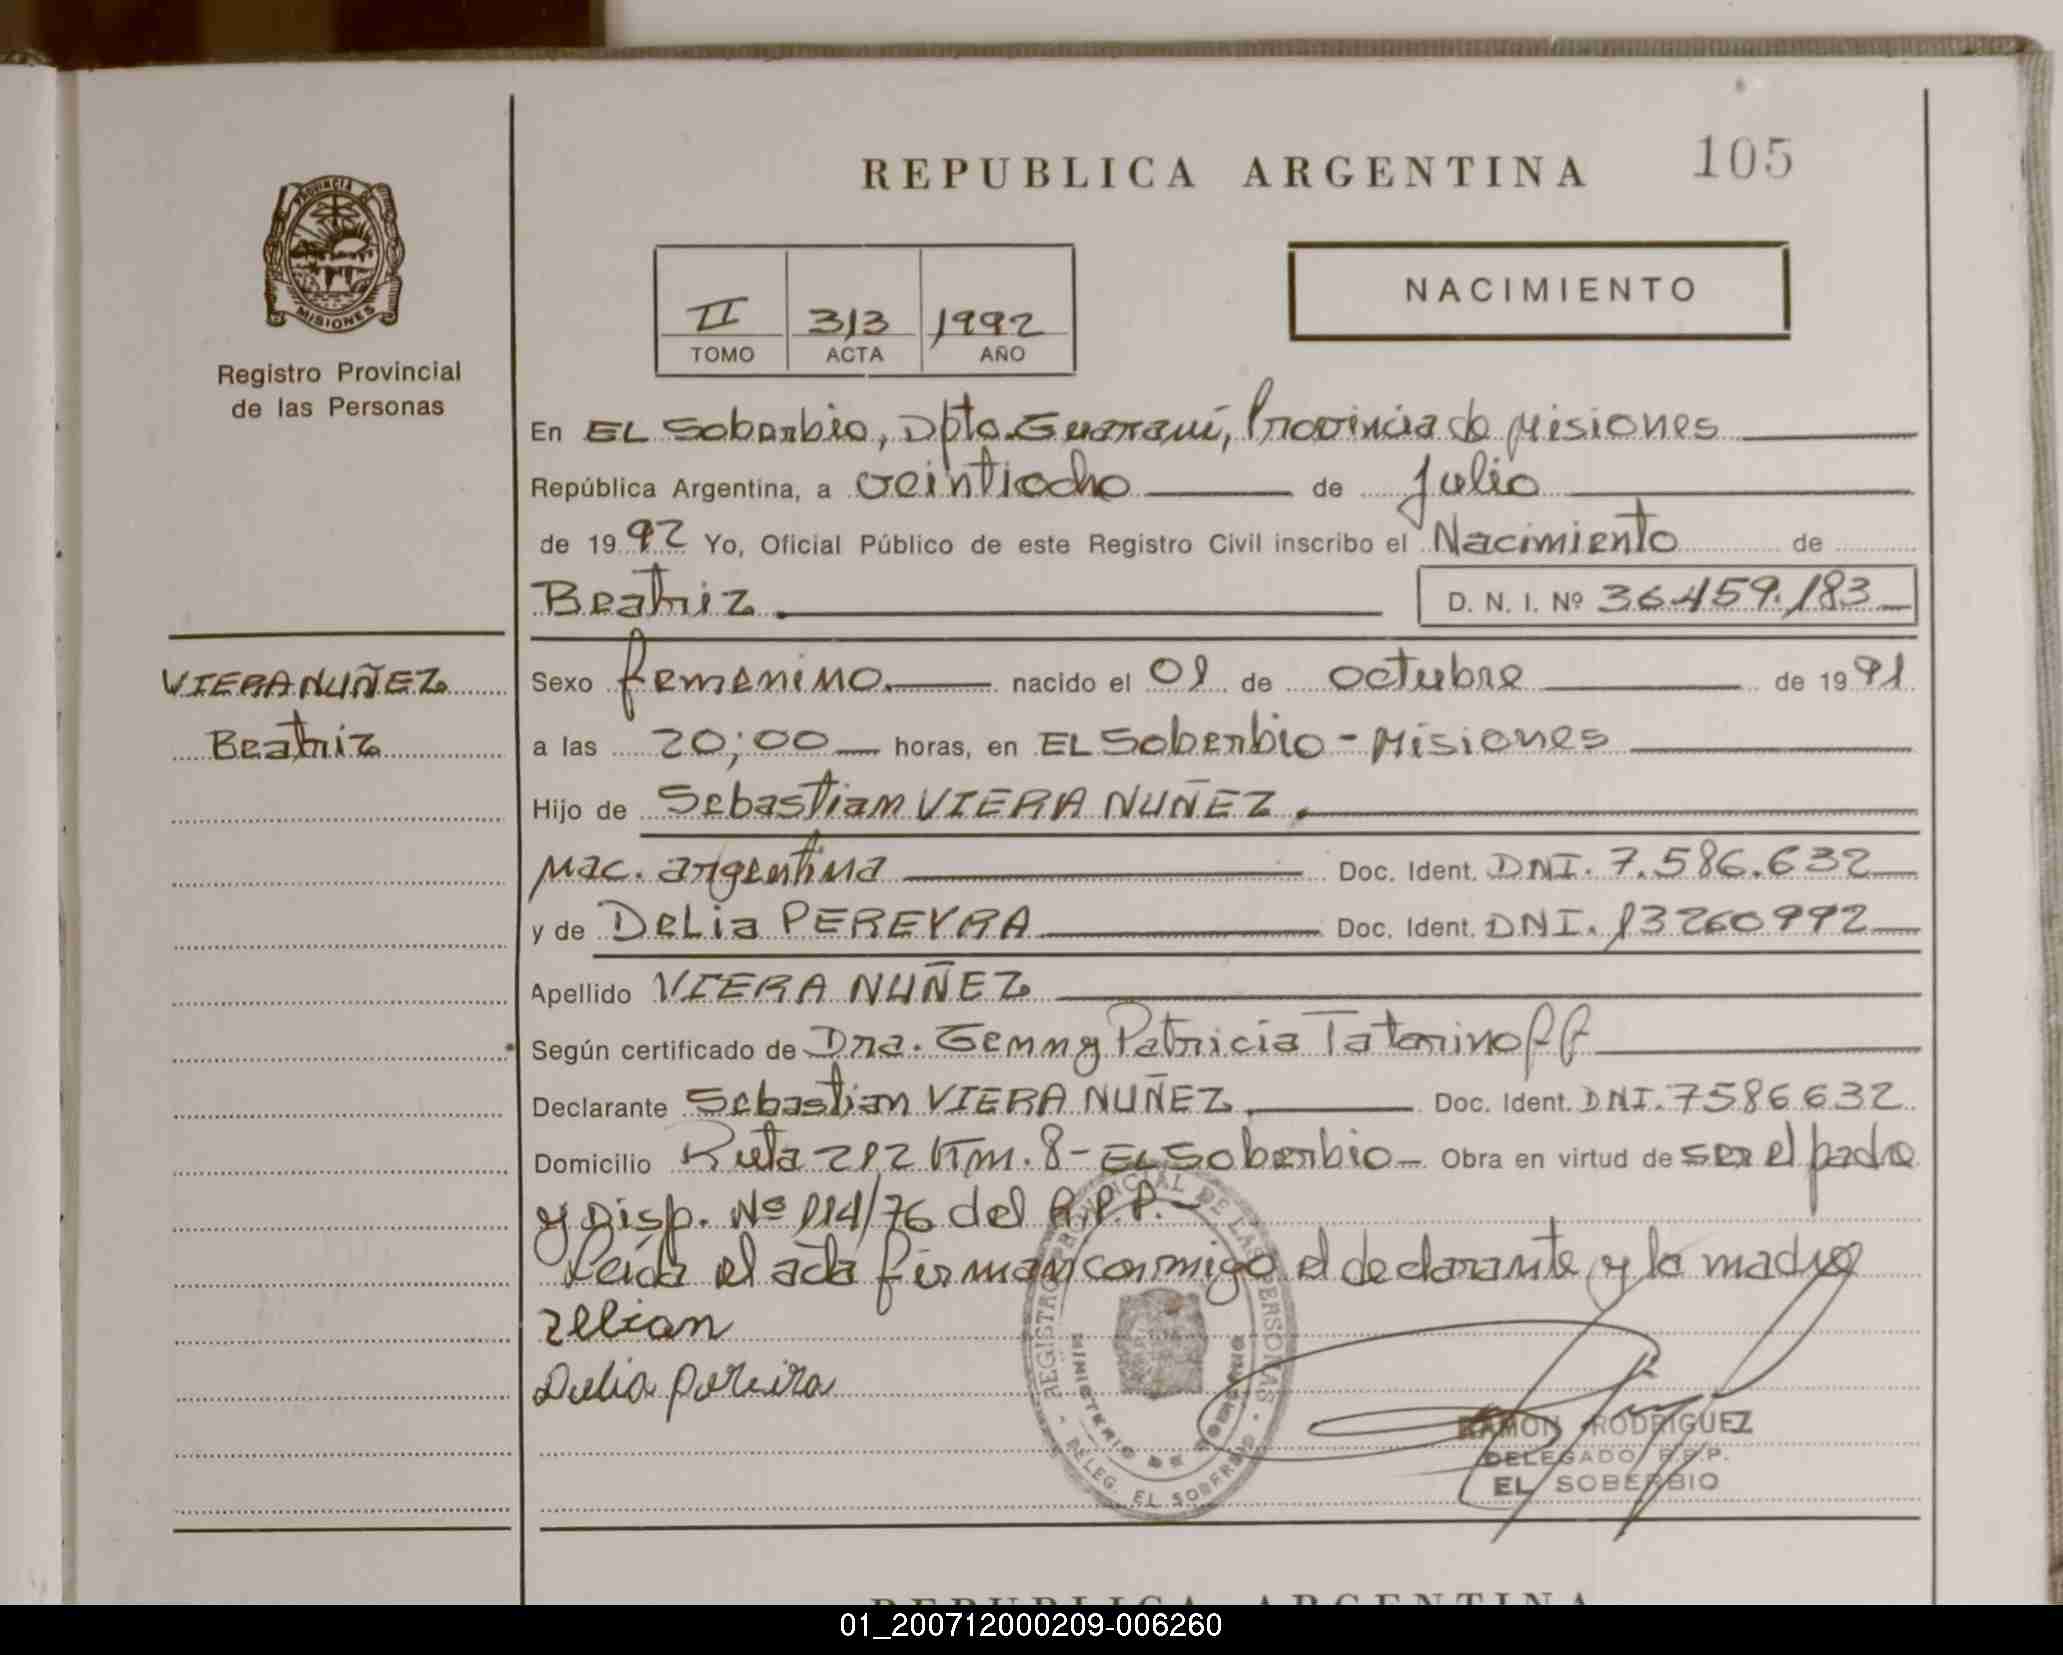 REPUBLICA ARGENTINA 105
PROVINCIA DE MISIONES
Registro Provincial
de las Personas
II 313 1992
TOMO ACTA AÑO
NACIMIENTO
En EL Soberbio, Dpto. Guaraní, Provincia de Misiones
República Argentina, a veintiocho de Julio
de 1992 Yo, Oficial Público de este Registro Civil inscribo el Nacimiento de
Beatriz. D. N. I. Nº 36.459.183
VIERA NUÑEZ
Beatriz
Sexo femenino. nacido el 01 de octubre de 1991
a las 20;00 horas, en EL Soberbio - Misiones
Hijo de Sebastian VIERA NUÑEZ.
Nac. argentina Doc. Ident. DNI. 7.586.632
y de DeLia PEREYRA Doc. Ident. DNI. 13260992
Apellido VIERA NUÑEZ
Según certificado de Dra. Gemmy Patricia Tatarinoff
Declarante Sebastian VIERA NUÑEZ. Doc. Ident. DNI. 7586632
Domicilio Ruta 212 Km. 8 - EL Soberbio - Obra en virtud de ser el padre
y Disp. Nº 114/76 del R.P.P. -
Leída el acta firman conmigo el declarante y la madre
Delia Pereira
REGISTRO PROVINCIAL DE LAS PERSONAS - DELEG. EL SOBERBIO
MINISTERIO DE GOBIERNO
RAMON RODRIGUEZ
DELEGADO R.P.P.
EL SOBERBIO
REPUBLICA ARGENTINA
01_200712000209-006260